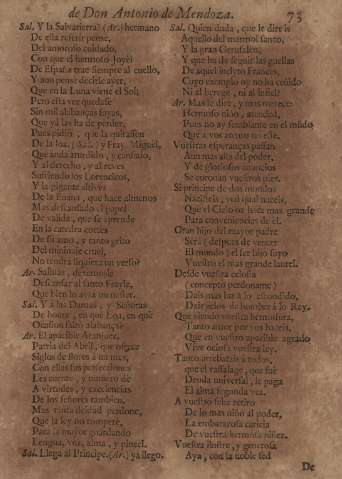 de Don Antonio de Mendoza. 73
Sal. Y la Salvatierra? (Ar.) hermano
De ella referir pense,
Del amoroso cuidado,
Con que el hermoso Joyèl
De España trae siempre al cuello,
Y aun pense decirle ayer,
Que en la Luna viene el Sol;
Pero ella vèr quedase
Sin mil alabanças suyas,
Que ya las ha de perder,
Pues pidiò, que la quitassen
De la loa. (Sal.) y Fray Miguèl,
Que anda aturdido, y cansado,
Y al derecho, y al revès
Sufriendo los
Y la gigante altivèz
De la fuma, que hace almenos
Mas descansado el papel
De valida, que se aprende
En la catedra cortès
De su amo, y tanto grito
Del
No tendrà siquiera un verso?
Ar. Salinas, dexemosle
Descansar al santo Frayle,
Que bien lo avrà menester.
Sal. Y à las Damas, y Señoras
De honor, en què Loa, en què
Ocasion faltò alabança?
Ar. El apacible
Patria del Abril, que ofrece
Siglos de flores à un mes,
Con ellas sus perfecciones
Les cuente, y numero de
A virtudes, y excelencias
De los señores tambien.
Mas tanta deidad perdone,
Que la ley no rompere,
Para la mayor guardando
Lengua, voz, alma, y pincel.
Sal. Llega al Principe. (Ar.) ya llego.
Sal. Quien duda, que le diràs
Aquello del marmol santo,
Y la gran Gerusalen,
Y que ha de seguir las guellas
De aquel invicto Francès,
Cuyo exemplo oy no ha ceñido
Ni al herege, ni al infiel?
Ar. Mas le dirè, y mas merece
Hermoso niño, atended,
Pues no ay semblante en el mũdo
Que à vos atento no estè.
Vuestras esperanças passan
Aun mas alla del poder,
Y de gloriosos anuncios
Se coronan vuestros pies.
Si principe de dos mundos
Nacisteis, yo quàl naceis,
Que el Cielo os hace mas grande
Para conveniencias de el.
Gran hijo del mayor padre
Serà (despues de vencer
El mundo) el ser hijo suyo
Vuestra el mas grande laurel.
Desde vuestra celosia
(concepto perdoname)
Dais mas luz à lo escondido,
Dais zelos de hombre à lo Rey.
Que siendo vuestra hermosura,
Tanto amor por vos haceis,
Que en vuestro apacible agrado
Vive ociosa vuestra ley.
Tanto arrebatais à todos,
que el vassallage, que fuè
Deuda universal, le paga
El alma segunda vez.
A vuestro feliz retiro
De lo mas niño al poder,
La embaraçosa caricia
De vuestra hermosa niñez.
Vuestra ilustre, y generosa
Aya, con la noble sed
De